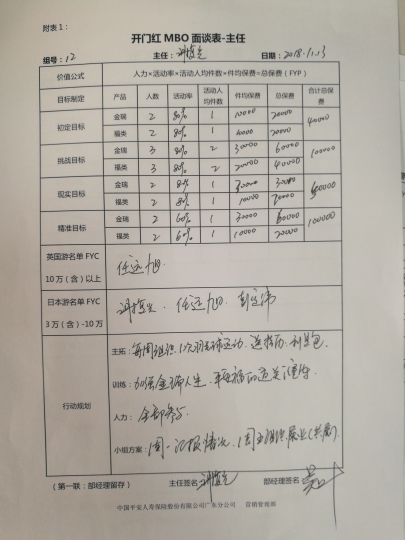 附表1：
开门红 MBO 面谈表-主任
组号：12 主任： 日期：2018.1.13
价值公式 人力×活动率×活动人均件数×件均保费=总保费（FYP）
目标制定 产品 人数 活动率 活动人均件数 件均保费 总保费 合计总保费
初定目标 金瑞 2 80% 1 10000 20000 40000
福类 2 80% 1 10000 20000
挑战目标 金瑞 3 80% 2 30000 60000 100000
福类 3 80% 2 20000 40000
现实目标 金瑞 2 80% 1 30000
福类 2 80% 1 10000
精准目标 金瑞 2 60% 1 30000 100000
福类 2 60% 1 10000 20000
英国游名单 FYC
10 万（含）以上
任远旭
日本游名单 FYC
3 万（含）-10 万
任远旭
行动规划
主拓：每周组织1次羽毛球运动、送挂历、利是包
训练：加强金瑞人生、平安福的通关演练
人力：全部参与
小组方案：1周一汇报情况、1周
（第一联：部经理留存） 主任签名 部经理签名
中国平安人寿保险股份有限公司广东分公司 营销管理部